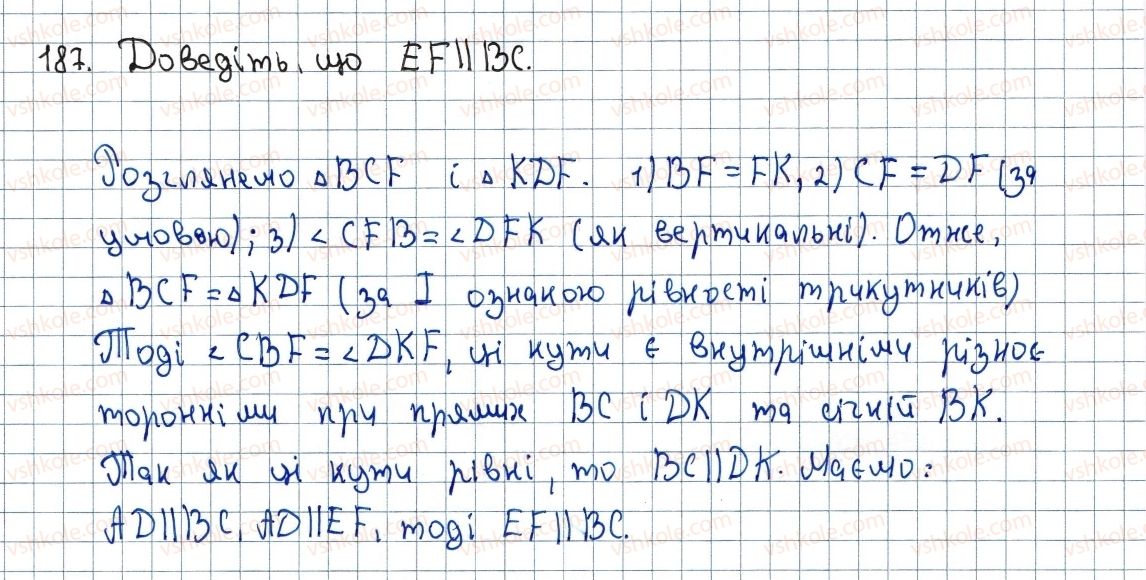 187. Доведіть, що EF||BC.
Розглянемо ▵BCF і ▵KDF. 1) BF = FK, 2) CF = DF (за
умовою); 3) ∠CFB = ∠DFK (як вертикальні). Отже,
▵BCF = ▵KDF (за I ознакою рівності трикутників)
Тоді ∠CBF = ∠DKF, ці кути є внутрішніми різнос
торонніми при прямих BC і DK та січній BK.
Так як ці кути рівні, то BC||DK. Маємо:
AD||BC, AD||EF, тоді EF||BC.